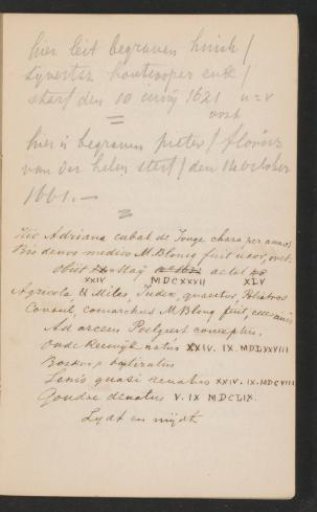 hier leit begraven hinick /
Sijvertsz houtcooper ende /
starf den 10 iunij 1621
hier is begraven pieter / floorisz
van der helm sterf / den 14 october
1661. —
Hic Adriana cubat de Jonge chara per annos
Bis denos medico M. Blonig fuit uxor,
obiit aetat
XXIV MDCXXVII XLV
Agricola & Miles Judex, quaestor,
Consul, comarchus M Blong fuit,
Ad arcem Poelgeest conceptus.
Oude Reewijk natus XXIV. IX. MDLXXVIII
Boskoop baptizatus
Lenis quasi renatus XXIV. IX. MDCVIII
Goudae denatus V. IX MDCLIX.
Lydt en mijdt